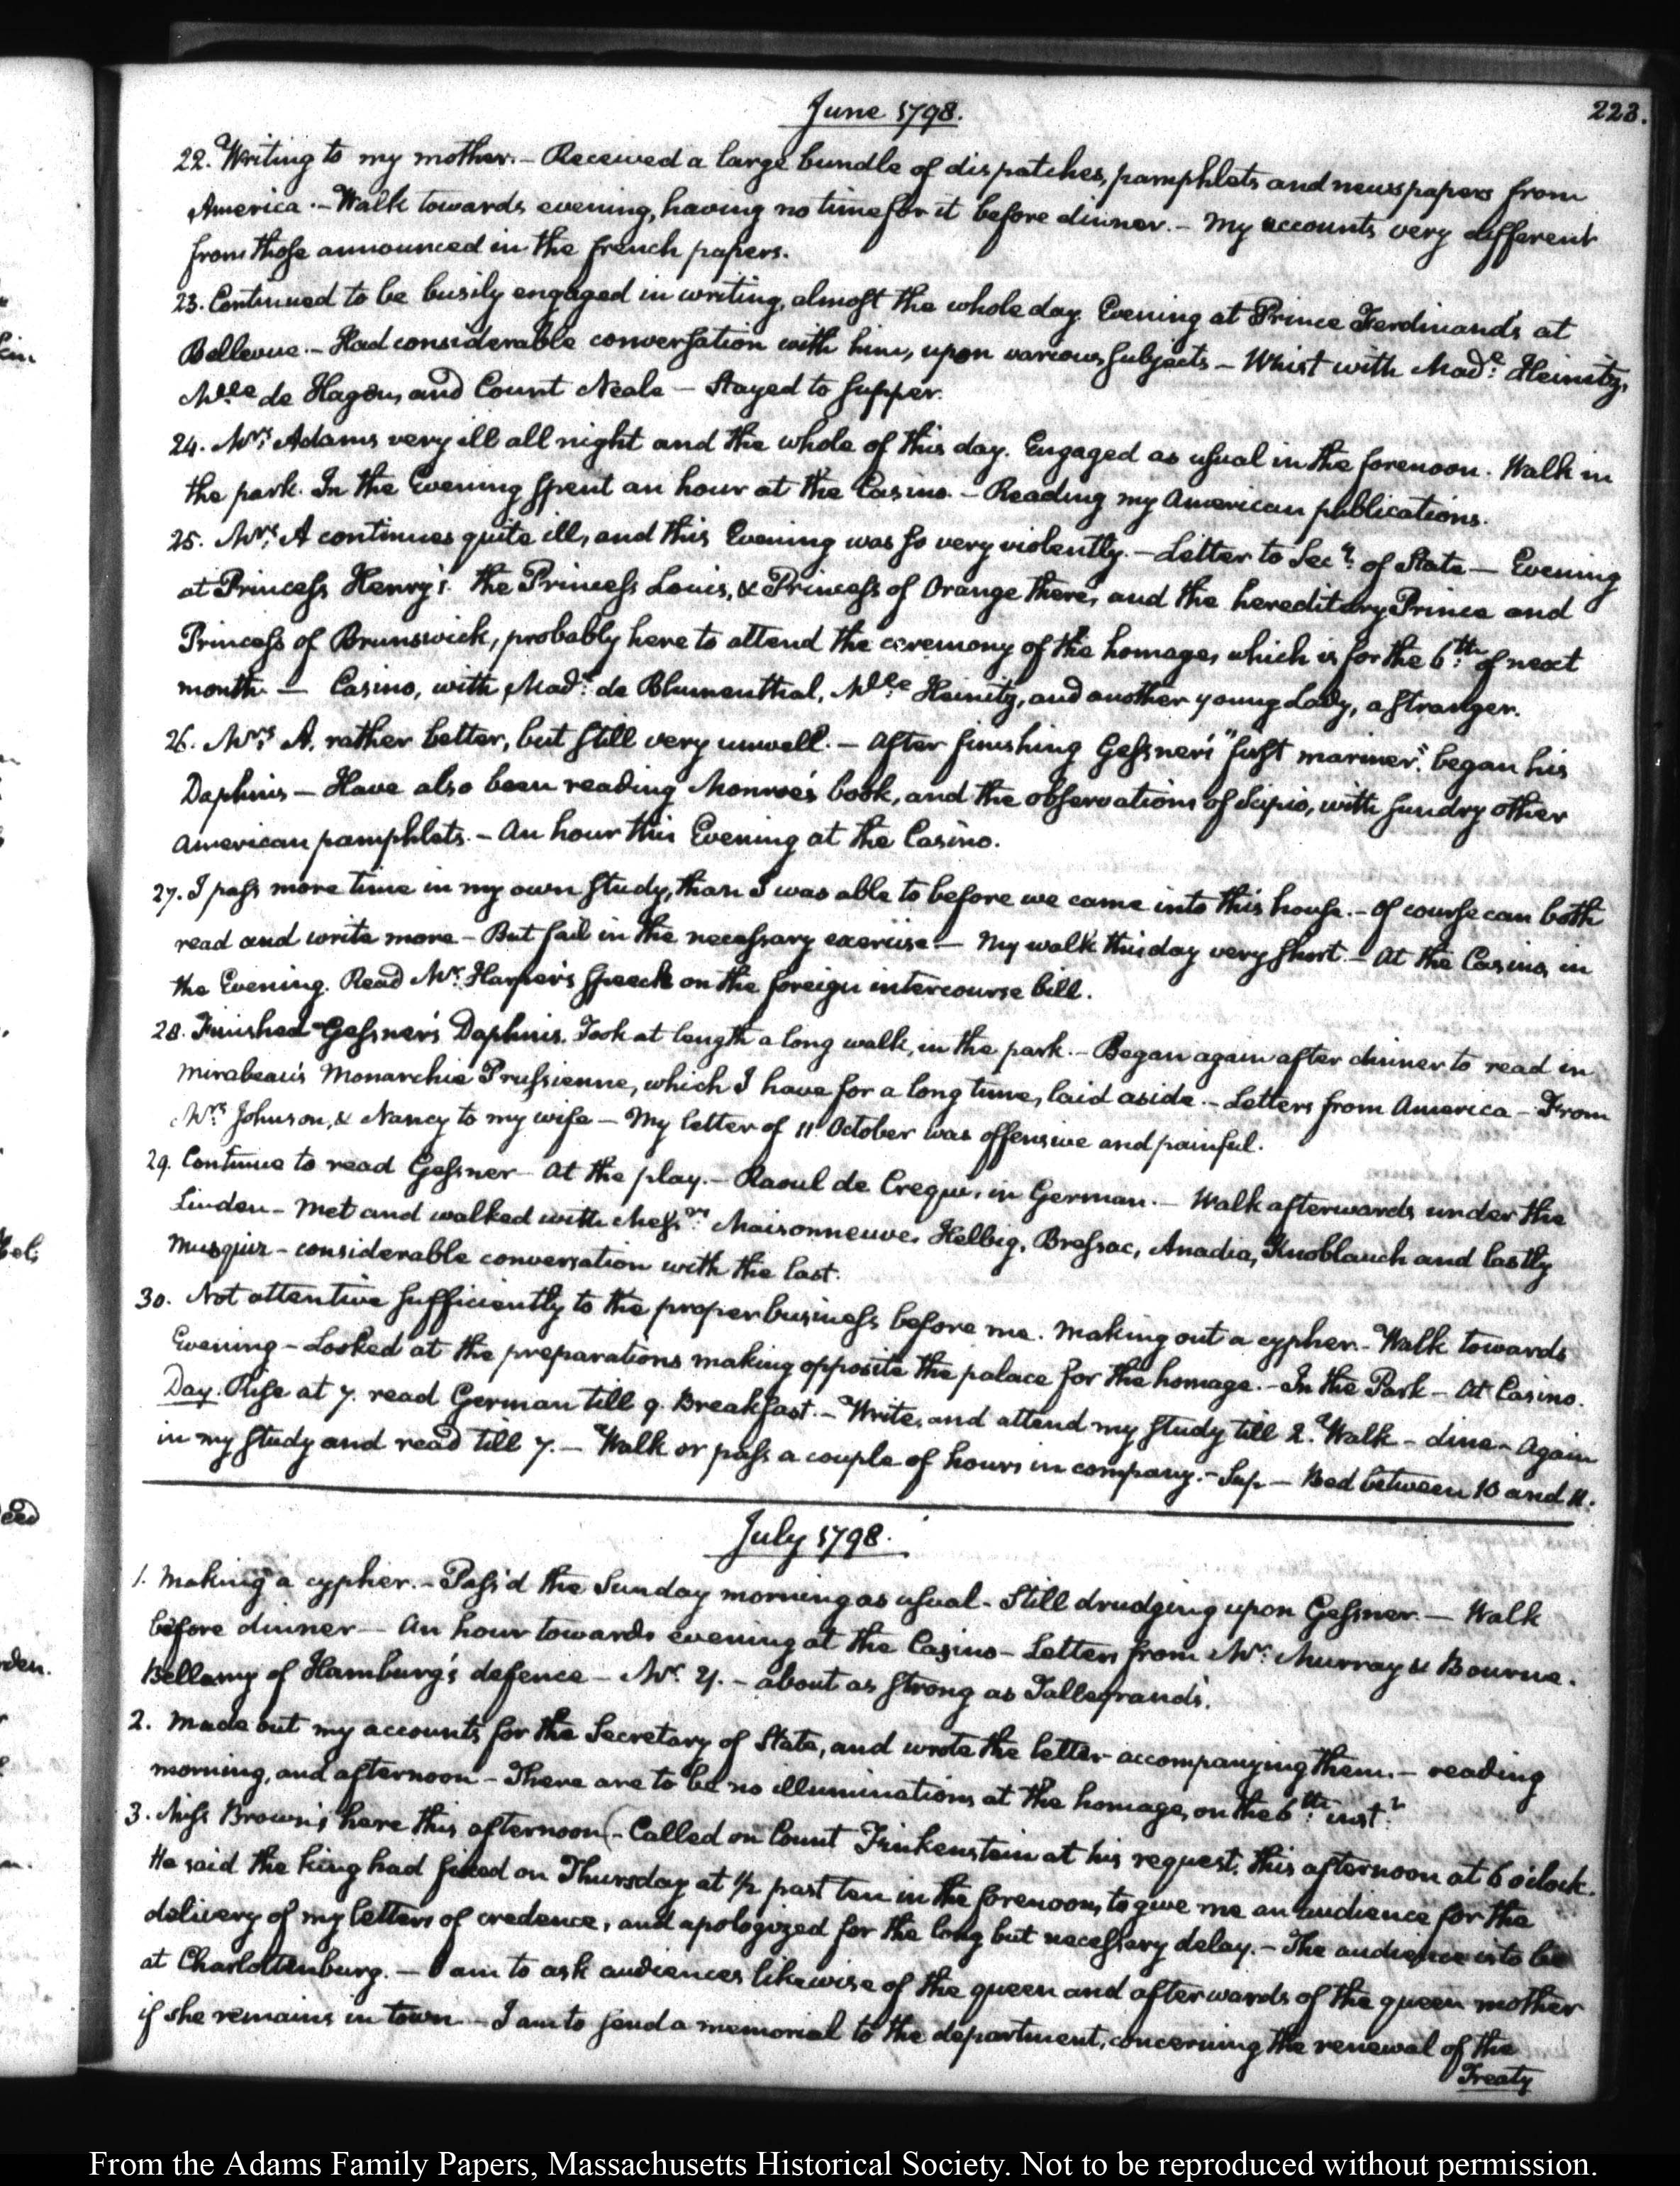 June 1798.
223.
22. Writing to my mother. - Received a large bundle of dispatches, pamphlets and newspapers from
America. - Walk towards evening, having no time for it before dinner. - My accounts very different
from those announced in the french papers.
23. Continued to be busily engaged in writing, almost the whole day. Evening at Prince Ferdinand's at
Bellevue. - Had considerable conversation with him, upon various subjects - Whist with Made. Heinitz,
Mlle de Hagen, and Count Neale - Stayed to supper.
24. Mrs. Adams very ill all night and the whole of this day. Engaged as usual in the forenoon. Walk in
the park. In the Evening spent an hour at the Casino. - Reading my American publications.
25. Mrs. A continues quite ill, and this Evening was so very violently. - Letter to Secy. of State - Evening
at Princess Henry's. the Princess Louis, & Princess of Orange there, and the hereditary Prince and
Princess of Brunswick, probably here to attend the ceremony of the homage, which is for the 6th. of next
month. - Casino, with Made. de Blumenthal, Mlle Heinitz, and another young Lady, a stranger.
26. Mrs. A. rather better, but still very unwell. - After finishing Gessner's "first mariner," began his
Daphnis - Have also been reading Monroe's book, and the observations of Scipio, with sundry other
American pamphlets. - An hour this Evening at the Casino.
27. I pass more time in my own study, than I was able to before we came into this house. - Of course can both
read and write more - But fail in the necessary exercise. - My walk this day very short. - At the Casino, in
the Evening. Read Mr. Harper's speech on the foreign intercourse bill.
28. Finished Gessner's Daphnis. Took at length a long walk, in the park. - Began again after dinner to read in
Mirabeau's Monarchie Prussienne, which I have for a long time, laid aside. - Letters from America - From
Mrs. Johnson, & Nancy to my wife - My letter of 11 October was offensive and painful.
29. Continue to read Gessner - At the play. - Raoul de Crequi, in German. - Walk afterwards under the
Linden - Met and walked with Messrs. Maisonneuve, Helbig, Bressac, Anadia, Knoblauch and lastly
Musquiz - considerable conversation with the last.
30. Not attentive sufficiently to the proper business before me. Making out a cypher. - Walk towards
Evening - Looked at the preparations making opposite the palace for the homage. - In the Park - At Casino.
Day. Rise at 7. read German till 9. Breakfast. - Write, and attend my study till 2. Walk - dine - Again
in my study and read till 7. - Walk or pass a couple of hours in company. - Sup - Bed between 10 and 11.
July 1798.
1. Making a cypher. - Pass'd the Sunday morning as usual - Still drudging upon Gessner. - Walk
before dinner - An hour towards evening at the Casino - Letters from Mr. Murray & Bourne.
Bellamy of Hamburg's defence - Mr. Y. - about as strong as Talleyrand's.
2. Made out my accounts for the Secretary of State, and wrote the letter accompanying them. - reading
morning, and afternoon - There are to be no illuminations at the homage, on the 6th. inst.
3. Miss Brown's here this afternoon. - Called on Count Finkenstein at his request, this afternoon at 6 o'clock.
He said the king had fixed on Thursday at 1/2 past ten in the forenoon, to give me an audience for the
delivery of my letters of credence, and apologized for the long but necessary delay. - The audience is to be
at Charlottenburg. - I am to ask audiences likewise of the queen and afterwards of the queen mother
if she remains in town - I am to send a memorial to the department, concerning the renewal of the
Treaty
From the Adams Family Papers, Massachusetts Historical Society. Not to be reproduced without permission.